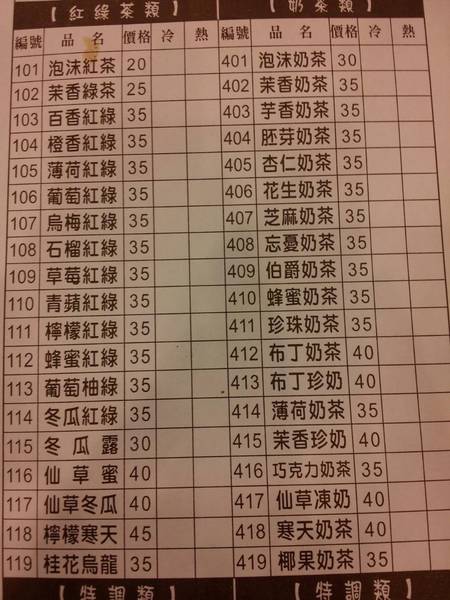 【紅綠茶類】
編號 品名 價格 冷 熱
101 泡沫紅茶 20
102 茉香綠茶 25
103 百香紅綠 35
104 橙香紅綠 35
105 薄荷紅綠 35
106 葡萄紅綠 35
107 烏梅紅綠 35
108 石榴紅綠 35
109 草莓紅綠 35
110 青蘋紅綠 35
111 檸檬紅綠 35
112 蜂蜜紅綠 35
113 葡萄柚綠 35
114 冬瓜紅綠 35
115 冬瓜露 30
116 仙草蜜 40
117 仙草冬瓜 40
118 檸檬寒天 45
119 桂花烏龍 35
【特調類】
【奶茶類】
編號 品名 價格 冷 熱
401 泡沫奶茶 30
402 茉香奶茶 35
403 芋香奶茶 35
404 胚芽奶茶 35
405 杏仁奶茶 35
406 花生奶茶 35
407 芝麻奶茶 35
408 忘憂奶茶 35
409 伯爵奶茶 35
410 蜂蜜奶茶 35
411 珍珠奶茶 35
412 布丁奶茶 40
413 布丁珍奶 40
414 薄荷奶茶 35
415 茉香珍奶 40
416 巧克力奶茶 35
417 仙草凍奶 40
418 寒天奶茶 40
419 椰果奶茶 35
【特調類】